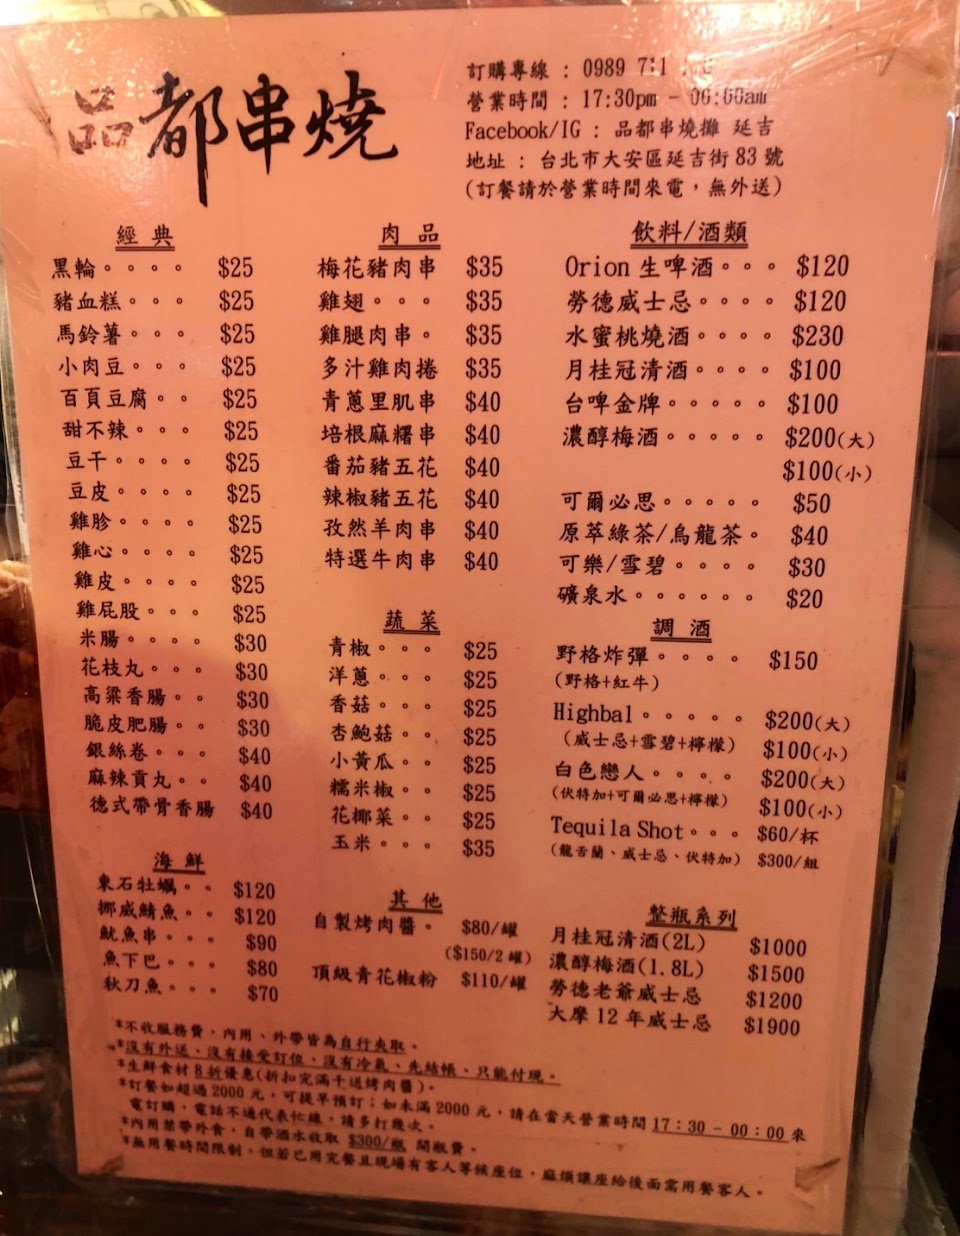 品都串燒
訂購專線：0989 711
營業時間：17:30pm - 00:00am
Facebook/IG：品都串燒攤 延吉
地址：台北市大安區延吉街83號
(訂餐請於營業時間來電，無外送)
經 典
黑輪。。。。 $25
豬血糕。。。 $25
馬鈴薯。。。 $25
小肉豆。。。 $25
百頁豆腐。。 $25
甜不辣。。。 $25
豆干。。。。 $25
豆皮。。。。 $25
雞胗。。。。 $25
雞心。。。。 $25
雞皮。。。。 $25
雞屁股。。。 $25
米腸。。。。 $30
花枝丸。。。 $30
高粱香腸。。 $30
脆皮肥腸。。 $30
銀絲卷。。。 $40
麻辣貢丸。。 $40
德式帶骨香腸 $40
海 鮮
東石牡蠣。。 $120
挪威鯖魚。。 $120
魷魚串。。。 $90
魚下巴。。。 $80
秋刀魚。。。 $70
肉 品
梅花豬肉串 $35
雞翅。。。 $35
雞腿肉串。 $35
多汁雞肉捲 $35
青蔥里肌串 $40
培根麻糬串 $40
番茄豬五花 $40
辣椒豬五花 $40
孜然羊肉串 $40
特選牛肉串 $40
蔬 菜
青椒。。。 $25
洋蔥。。。 $25
香菇。。。 $25
杏鮑菇。。 $25
小黃瓜。。 $25
糯米椒。。 $25
花椰菜。。 $25
玉米。。。 $35
其 他
自製烤肉醬。 $80/罐
($150/2罐)
頂級青花椒粉 $110/罐
飲料/酒類
Orion生啤酒。。。 $120
勞德威士忌。。。。 $120
水蜜桃燒酒。。。。 $230
月桂冠清酒。。。。 $100
台啤金牌。。。。。 $100
濃醇梅酒。。。。。 $200(大)
$100(小)
可爾必思。。。。。 $50
原萃綠茶/烏龍茶。 $40
可樂/雪碧。。。。 $30
礦泉水。。。。。。 $20
調 酒
野格炸彈。。。。 $150
(野格+紅牛)
Highbal。。。。。 $200(大)
(威士忌+雪碧+檸檬) $100(小)
白色戀人。。。。 $200(大)
(伏特加+可爾必思+檸檬) $100(小)
Tequila Shot。。。 $60/杯
(龍舌蘭、威士忌、伏特加) $300/組
整瓶系列
月桂冠清酒(2L) $1000
濃醇梅酒(1.8L) $1500
勞德老爺威士忌 $1200
大摩12年威士忌 $1900
*不收服務費，內用、外帶皆為自行夾取。
*沒有外送、沒有接受訂位、沒有冷氣、先結帳、只能付現。
*生鮮食材8折優惠(折扣完滿千送烤肉醬)。
*訂餐如超過2000元，可提早預訂；如未滿2000元，請在當天營業時間17:30-00:00來
電訂購，電話不通代表忙線，請多打幾次。
*內用禁帶外食，自帶酒水收取 $300/瓶 開瓶費。
*無用餐時間限制，但若已用完餐且現場有客人等候座位，麻煩讓座給後面需用餐客人。